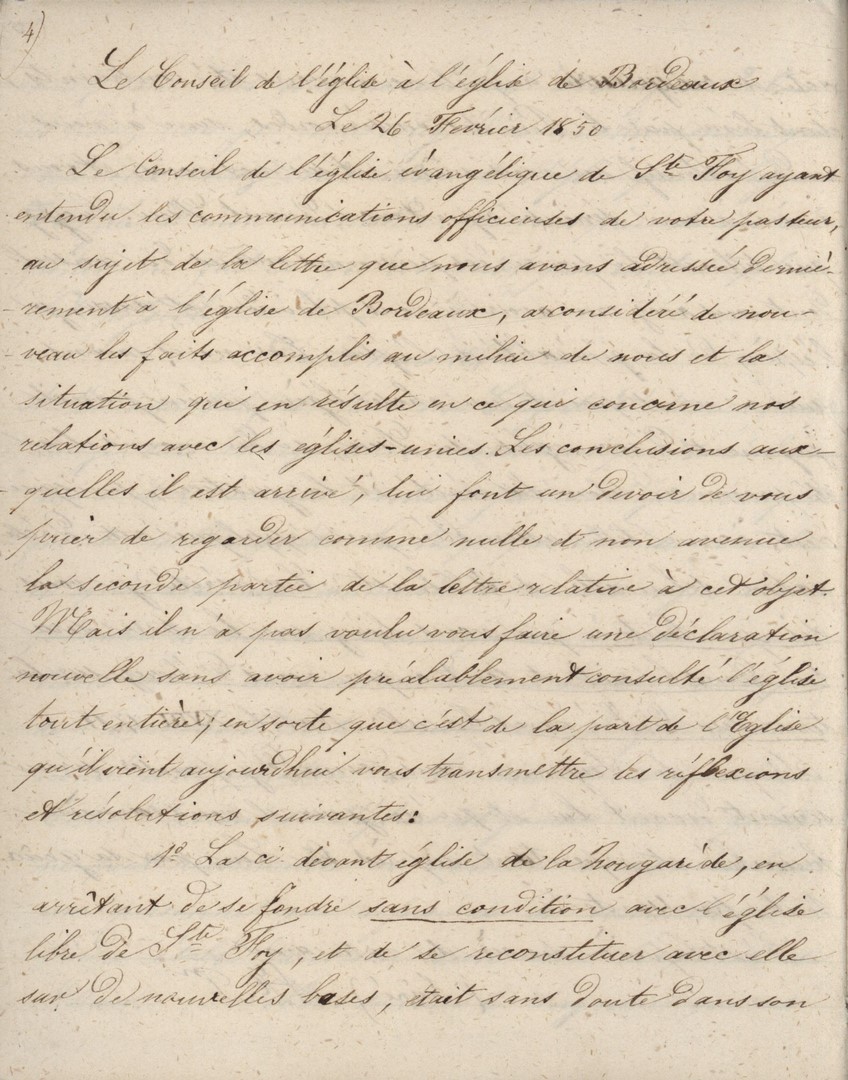 4)
Le Conseil de l'église à l'église de Bordeaux
Le 26 Février 1850
Le Conseil de l'église évangélique de Ste Foy ayant
entendu les communications officieuses de votre pasteur,
au sujet de la lettre que nous avons adressée derniè-
-rement à l'église de Bordeaux, a considéré de nou-
-veau les faits accomplis au milieu de nous et la
situation qui en résulte en ce qui concerne nos
relations avec les églises-unies. Les conclusions aux-
-quelles il est arrivé, lui font un devoir de vous
prier de regarder comme nulle et non avenue
la seconde partie de la lettre relative à cet objet.
Mais il n'a pas voulu vous faire une déclaration
nouvelle sans avoir préalablement consulté l'église
tout entière; en sorte que c'est de la part de l'Eglise
qu'il vient aujourdhui vous transmettre les réflexions
et résolutions suivantes:
1º La ci devant église de la Nougarède, en
arrêtant de se fondre sans condition avec l'église
libre de Ste Foy, et de se reconstituer avec elle
sur de nouvelles bases, était sans doute dans son